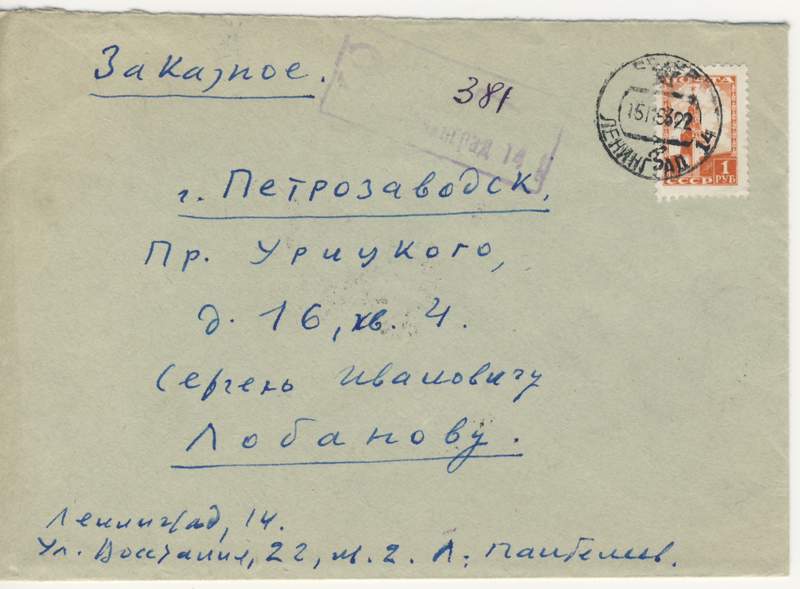 Заказное.
381
Ленинград 14
ПОЧТА
1
РУБ
СССР
ЛЕНИНГРАД 14
г. Петрозаводск,
Пр. Урицкого,
д. 16, кв. 4.
Сергею Ивановичу
Лобанову.
Ленинград, 14.
Ул. Восстания, 22, кв. 2. Л. Пантелеев.